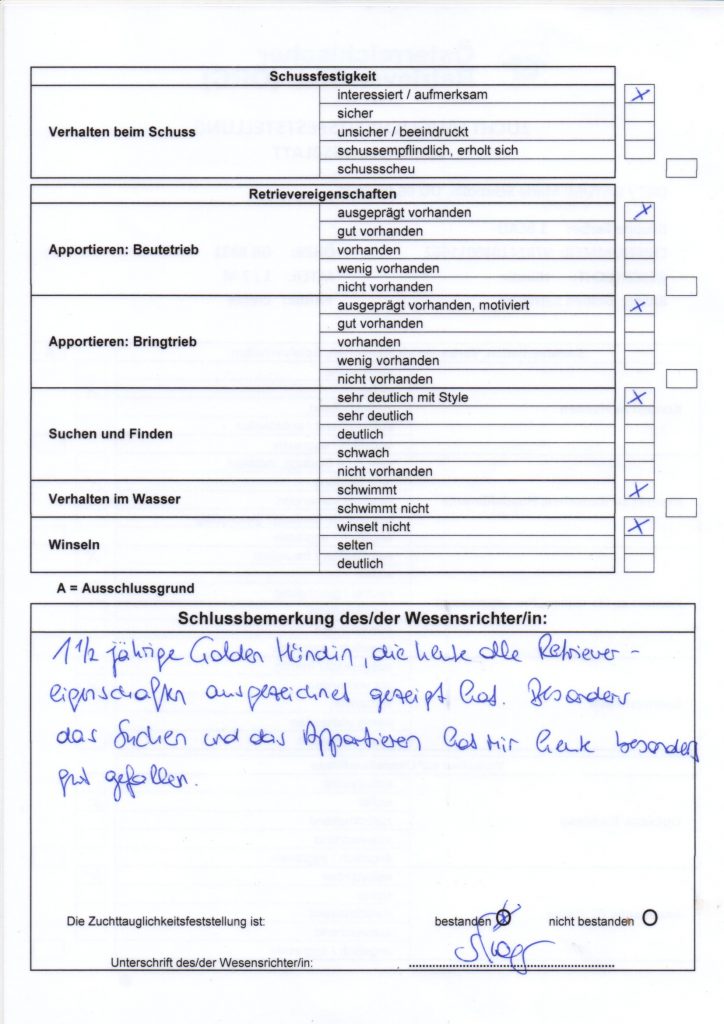 Schussfestigkeit
Verhalten beim Schuss
interessiert / aufmerksam X
sicher
unsicher / beeindruckt
schussempflindlich, erholt sich
schussscheu
Retrievereigenschaften
Apportieren: Beutetrieb
ausgeprägt vorhanden X
gut vorhanden
vorhanden
wenig vorhanden
nicht vorhanden
Apportieren: Bringtrieb
ausgeprägt vorhanden, motiviert X
gut vorhanden
vorhanden
wenig vorhanden
nicht vorhanden
Suchen und Finden
sehr deutlich mit Style X
sehr deutlich
deutlich
schwach
nicht vorhanden
Verhalten im Wasser
schwimmt X
schwimmt nicht
Winseln
winselt nicht X
selten
deutlich
A = Ausschlussgrund
Schlussbemerkung des/der Wesensrichter/in:
1 1/2 jährige Golden Hündin, die heute alle Retriever-
eigenschaften ausgezeichnet gezeigt hat. Besonders
das Suchen und das Apportieren hat mir heute besonders
gut gefallen.
Die Zuchttauglichkeitsfeststellung ist: bestanden X nicht bestanden
Unterschrift des/der Wesensrichter/in: